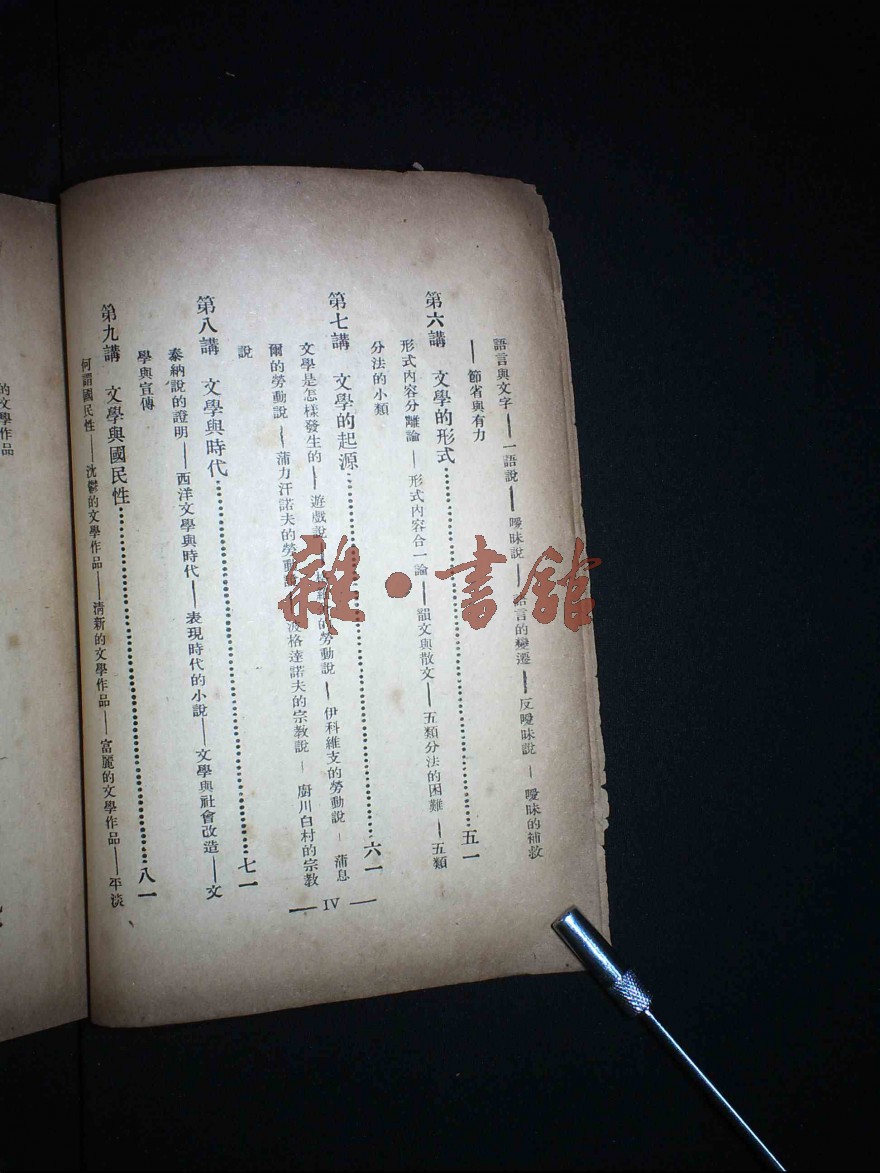 語言與文字——一語說——曖昧說——語言的變遷——反曖昧說——曖昧的補救
——節省與有力
第六講 文學的形式…………五一
形式內容分離論——形式內容合一論——韻文與散文——五類分法的困難——五類
分法的小類
第七講 文學的起源…………六一
文學是怎樣發生的——遊戲說 的勞動說——伊科維支的勞動說——蒲息
爾的勞動說——蒲力汗諾夫的勞動說 波格達諾夫的宗教說——廚川白村的宗教
說
第八講 文學與時代…………七一
泰納說的證明——西洋文學與時代——表現時代的小說——文學與社會改造——文
學與宣傳
第九講 文學與國民性…………八一
何謂國民性——沈鬱的文學作品——清新的文學作品——富麗的文學作品——平淡
— IV —
的文學作品
雜·書館